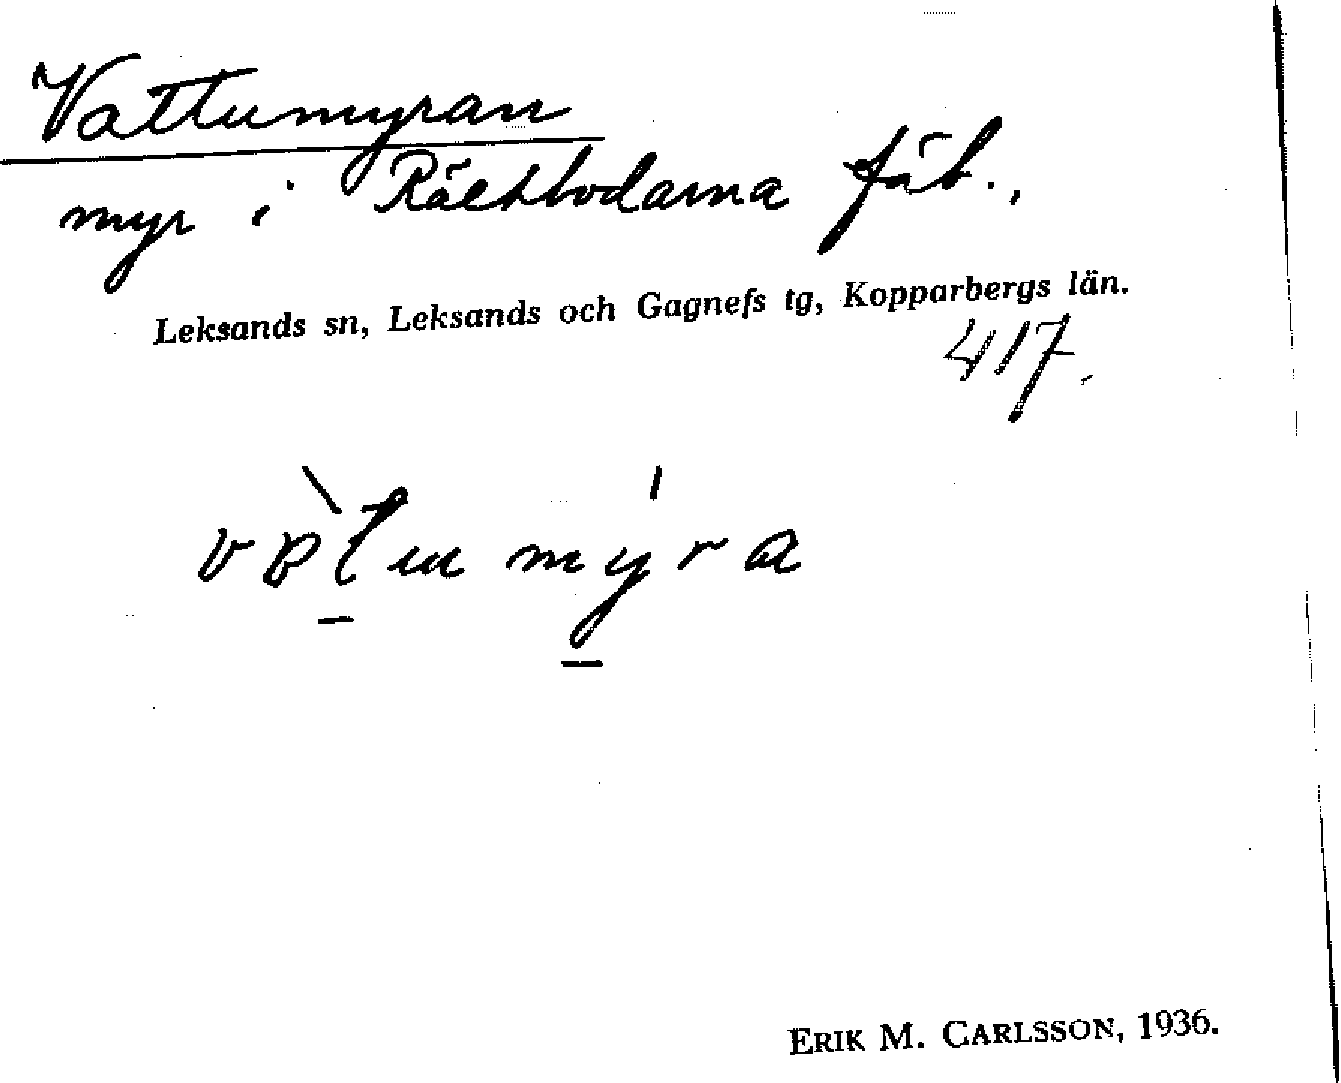 Vattumyran
myr i Rältbodarna fäb.,
Leksands sn, Leksands och Gagnefs tg, Kopparbergs län.
417.
ERIK M. CARLSSON, 1936.